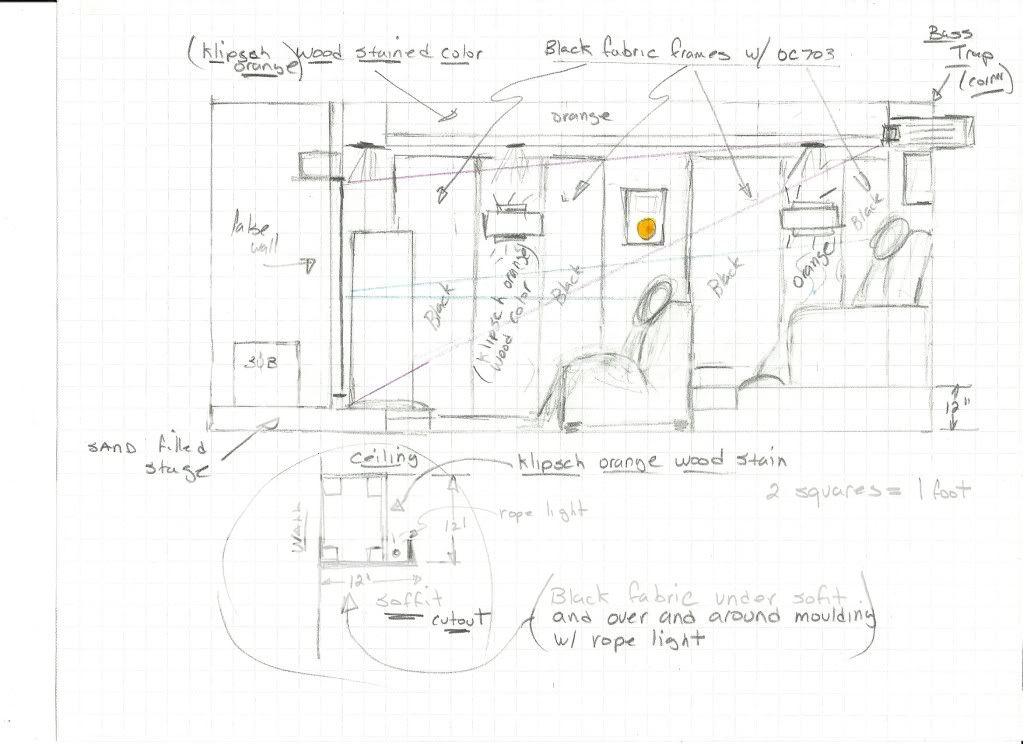 (Klipsch orange) wood stained color
Black fabric frames w/ OC703
Bass
Trap
(corner)
orange
false
wall
Black
(Klipsch orange)
wood color
Black
Black
orange
Black
SAND filled
stage
12"
ceiling
Klipsch orange wood stain
2 squares = 1 foot
rope light
WALL
12'
12'
soffit
cutout
(Black fabric under sofit
and over and around moulding
w/ rope light)